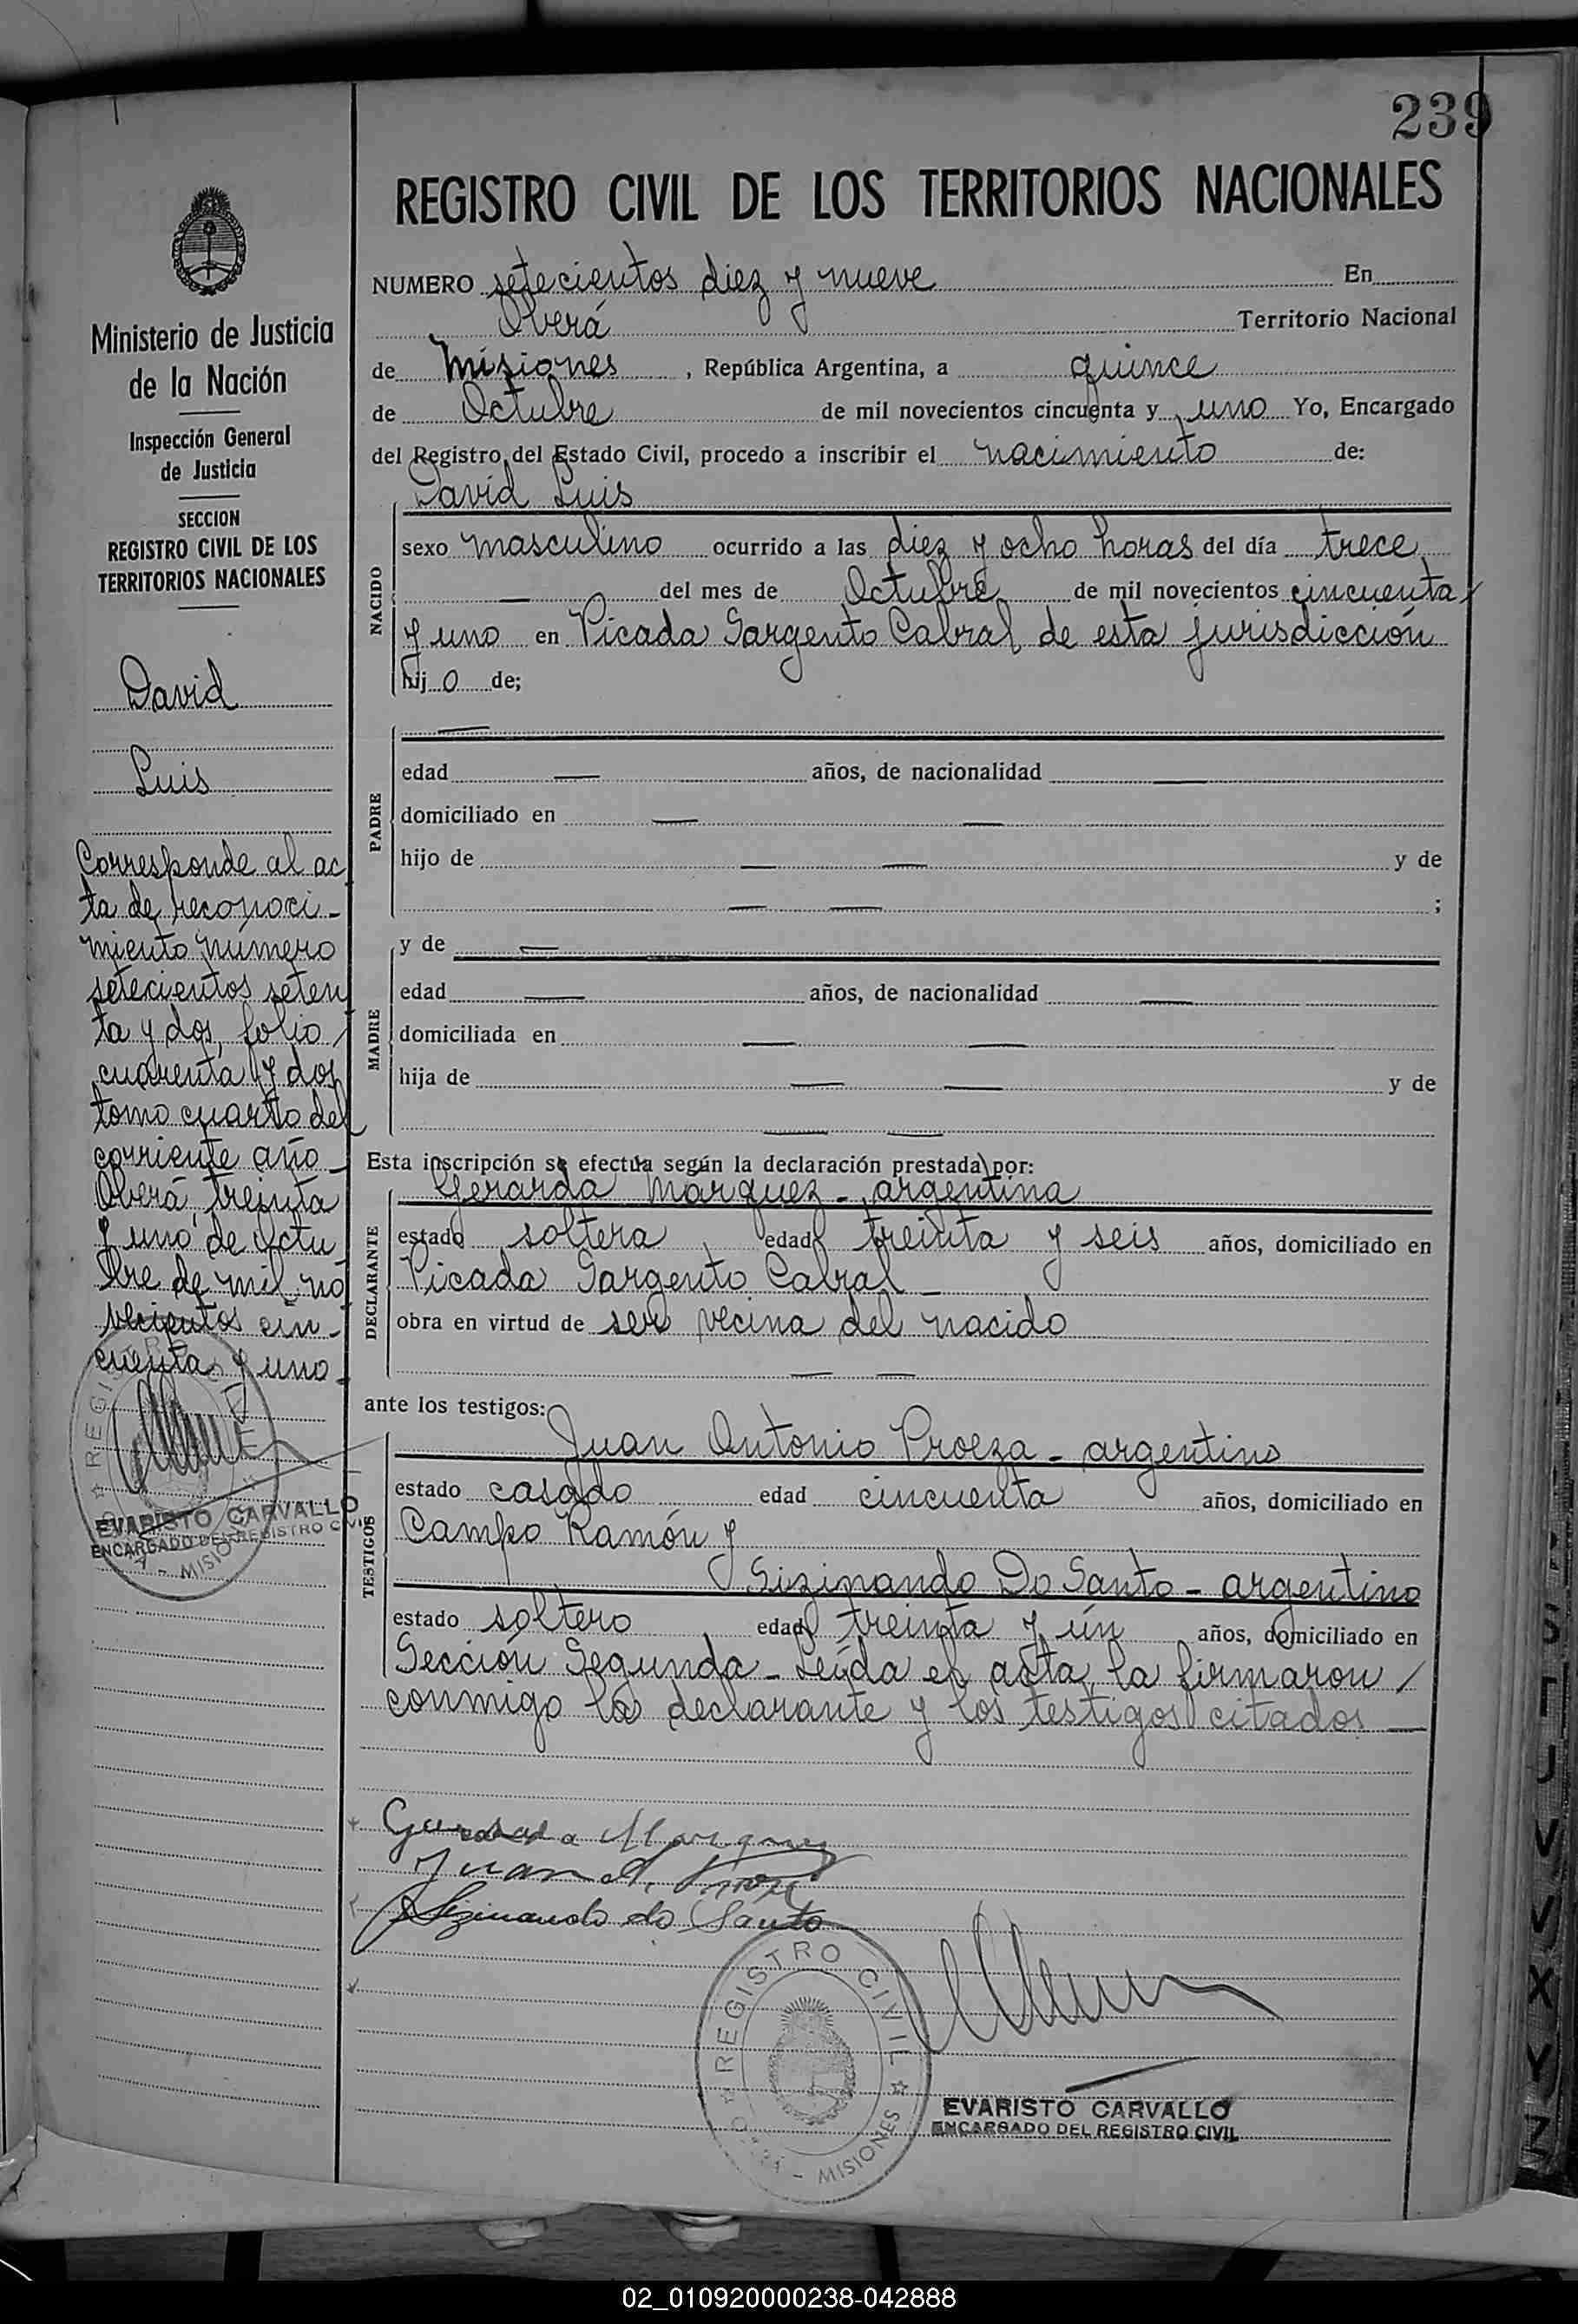 239
REGISTRO CIVIL DE LOS TERRITORIOS NACIONALES
Ministerio de Justicia
de la Nación
Inspección General
de Justicia
SECCION
REGISTRO CIVIL DE LOS
TERRITORIOS NACIONALES
David
Luis
Corresponde al ac
ta de reconoci-
miento número
setecientos seten
ta y dos, folio
cuarenta y dos
tomo cuarto del
corriente año
Oberá, treinta
y uno de Octu
bre de mil no
vecientos cin-
cuenta y uno-
EVARISTO CARVALLO
ENCARGADO DEL REGISTRO CIVIL
NUMERO setecientos diez y nueve En
Oberá Territorio Nacional
de Misiones, República Argentina, a quince
de Octubre de mil novecientos cincuenta y uno Yo, Encargado
del Registro del Estado Civil, procedo a inscribir el nacimiento de:
NACIDO
David Luis
sexo masculino ocurrido a las diez y ocho horas del día trece
— del mes de Octubre de mil novecientos cincuenta/
y uno en Picada Sargento Cabral de esta jurisdicción
hij o de;
PADRE
—
edad — años, de nacionalidad —
domiciliado en — —
hijo de — — y de
— — ;
MADRE
y de —
edad — años, de nacionalidad —
domiciliada en — —
hija de — — y de
— —
Esta inscripción se efectúa según la declaración prestada por:
DECLARANTE
Gerarda Marquez - argentina
estado soltera edad treinta y seis años, domiciliado en
Picada Sargento Cabral -
obra en virtud de ser vecina del nacido
— —
ante los testigos:
TESTIGOS
Juan Antonio Proeza - argentino
estado casado edad cincuenta años, domiciliado en
Campo Ramón y
Sizinando Do Santo - argentino
estado soltero edad treinta y ún años, domiciliado en
Sección Segunda - Leída el acta, la firmaron /
conmigo la declarante y los testigos citados —
Gerarda Marquez
Juan A.
Sizinando do Santo
REGISTRO CIVIL
MISIONES
EVARISTO CARVALLO
ENCARGADO DEL REGISTRO CIVIL
02_010920000238-042888